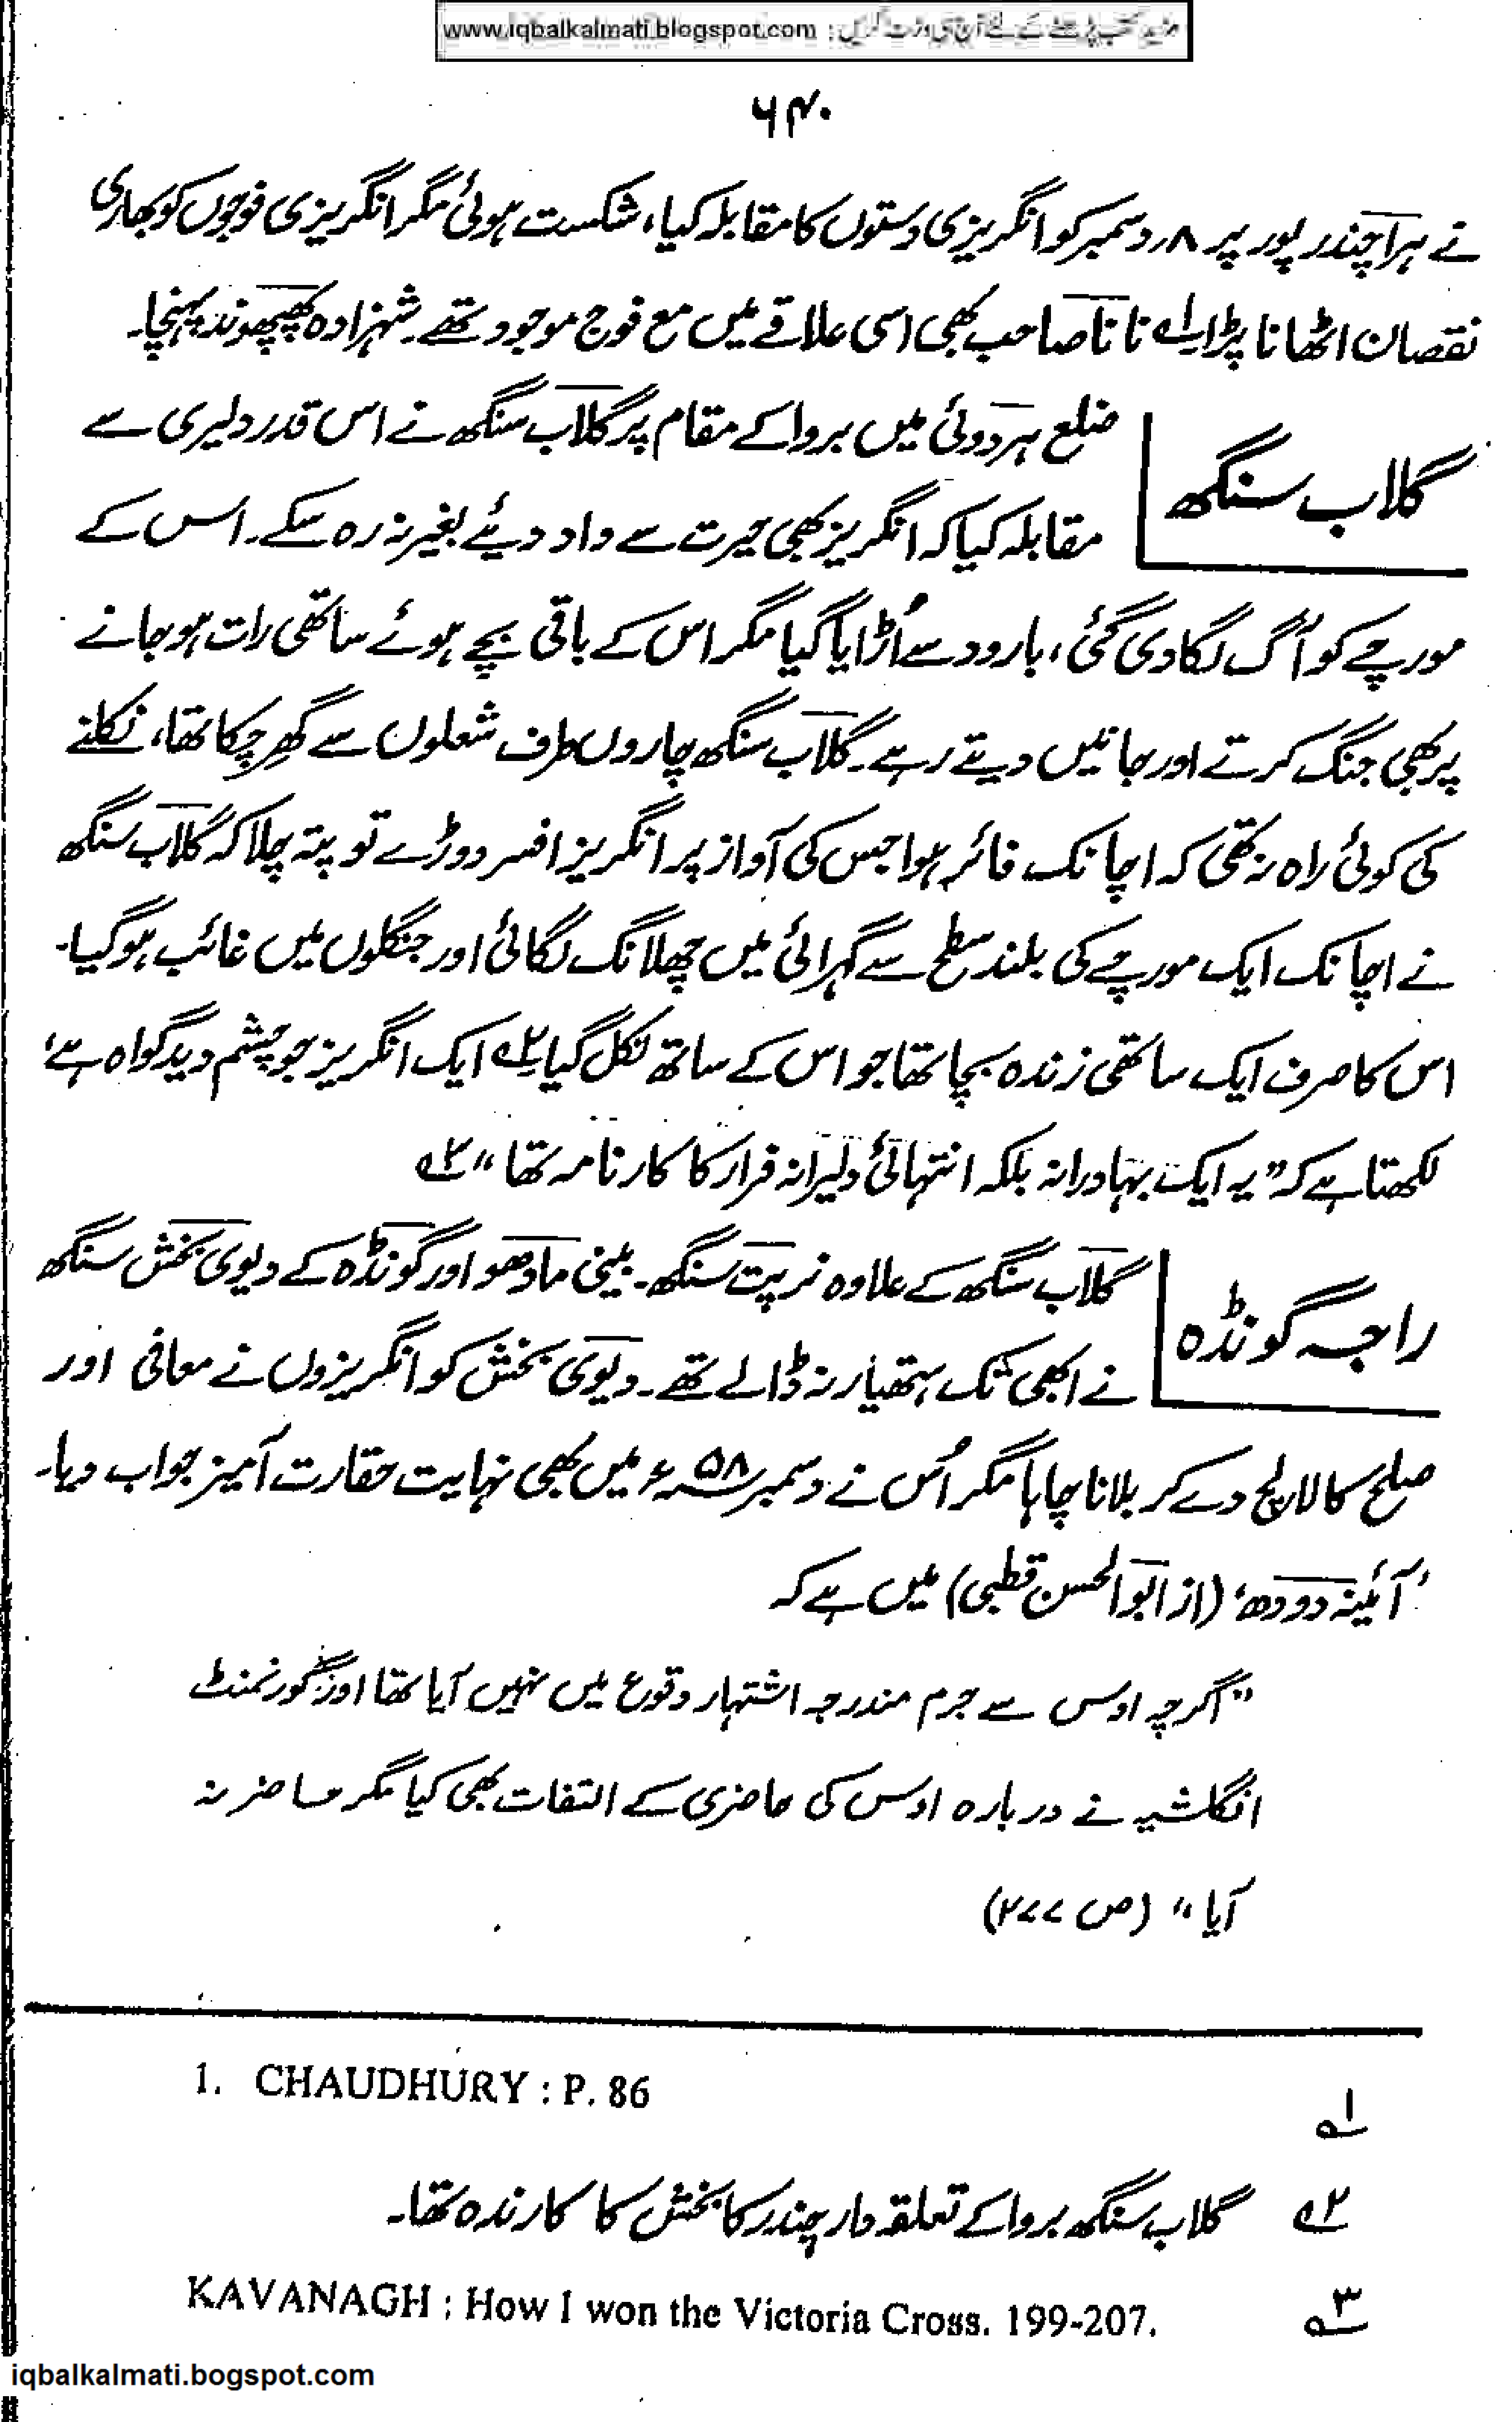 www.iqbalkalmati.blogspot.com : مزید کتب پڑھنے کے لئے آج ہی وزٹ کریں
۶۴۰
نے ہراچندر پور پر ۸ر دسمبر کو انگریزی دستوں کا مقابلہ کیا، شکست ہوئی مگر انگریزی فوجوں کو بھاری
نقصان اٹھانا پڑا۔۱؎ نانا صاحب بھی اسی علاقے میں مع فوج موجود تھے۔ شہزادہ پھپھوند پہنچا۔
گلاب سنگھ
ضلع ہردوئی میں بروا کے مقام پر گلاب سنگھ نے اس قدر دلیری سے
مقابلہ کیا کہ انگریز بھی حیرت سے داد دیئے بغیر نہ رہ سکے۔ اس کے
مورچے کو آگ لگا دی گئی، بارود سے اُڑایا گیا مگر اس کے باقی بچے ہوئے ساتھی رات ہو جانے
پر بھی جنگ کرتے اور جانیں دیتے رہے۔ گلاب سنگھ چاروں طرف شعلوں سے گھِر چکا تھا، نکلنے
کی کوئی راہ نہ تھی کہ اچانک فائر ہوا جس کی آواز پر انگریز افسر دوڑے تو پتہ چلا کہ گلاب سنگھ
نے اچانک ایک مورچے کی بلند سطح سے گہرائی میں چھلانگ لگائی اور جنگلوں میں غائب ہو گیا۔
اس کا صرف ایک ساتھی زندہ بچا تھا جو اس کے ساتھ نکل گیا۔۲؎ ایک انگریز جو چشم دید گواہ ہے،
لکھتا ہے کہ ”یہ ایک بہادرانہ بلکہ انتہائی دلیرانہ فرار کا کارنامہ تھا“ ۳؎
راجہ گونڈہ
گلاب سنگھ کے علاوہ نرپت سنگھ۔ بینی مادھو اور گونڈہ کے دیوی بخش سنگھ
نے ابھی تک ہتھیار نہ ڈالے تھے۔ دیوی بخش کو انگریزوں نے معافی اور
صلح کا لالچ دے کر بلانا چاہا مگر اُس نے دسمبر ۵۸ء میں بھی نہایت حقارت آمیز جواب دیا۔
’آئینہ دودھ‘ (از ابوالحسن قطبی) میں ہے کہ
”اگرچہ اوس سے جرم مندرجہ اشتہار وقوع میں نہیں آیا تھا اور گورنمنٹ
انگلشیہ نے دربارہ اوس کی حاضری کے التفات بھی کیا مگر حاضر نہ
آیا“ (ص ۲۷۷)
1. CHAUDHURY : P. 86 ۱؎
۲؎ گلاب سنگھ بروا کے تعلقہ دار چندر کا بخش کا کارندہ تھا۔
KAVANAGH : How I won the Victoria Cross. 199-207. ۳؎
iqbalkalmati.bogspot.com